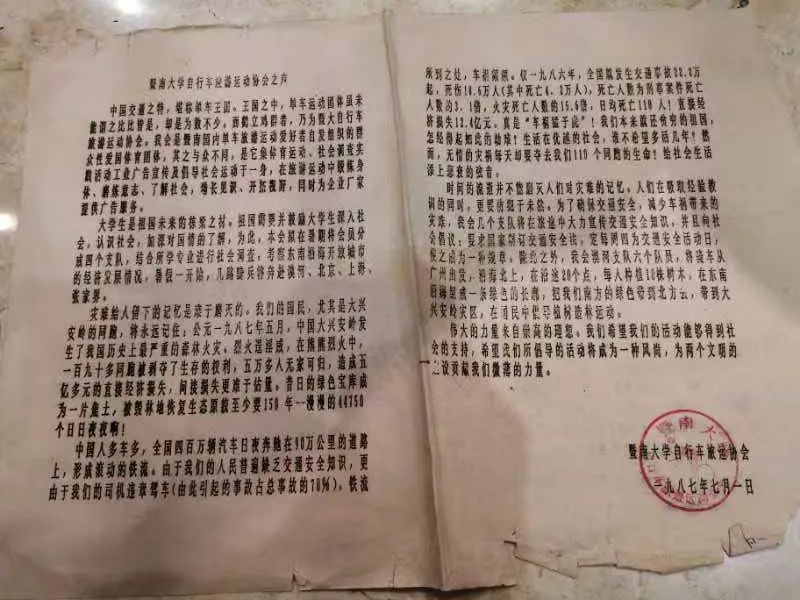 暨南大学自行车旅游运动协会之声
中国交通之特,堪称单车王国。王国之中,单车运动团体虽未
能谓之比比皆是,却是为数不少。而鹤立鸡群者,乃为暨大自行车
旅游运动协会。我会是暨南园内单车旅游运动爱好者自发组织的群
众性爱国体育团体,其之与众不同,是它集体育运动、社会调查实
践活动工业广告宣传及倡导社会运动于一身,在旅游运动中锻炼身
体、磨练意志、了解社会,增长见识、开拓视野,同时为企业厂家
提供广告服务。
大学生是祖国未来的栋梁之材。祖国需要并鼓励大学生深入社
会,认识社会,加深对国情的了解,为此,本会拟在暑期将会员分
成四个支队,结合所学专业进行社会调查。考察东南沿海开放城市
的经济发展情况,暑假一开始,几路骑兵将奔赴漠河、北京、上海、
张家界。
灾难给人留下的记忆是难于磨灭的。我们的国民,尤其是大兴
安岭的同胞,将永远记住:公元一九八七年五月,中国大兴安岭发
生了我国历史上最严重的森林火灾。烈火逞淫威,在熊熊烈火中,
一百九十多同胞被剥夺了生存的权利,五万多人无家可归,造成五
亿多元的直接经济损失,间接损失更难于估量。昔日的绿色宝库成
为一片焦土,被毁林地恢复生态原貌至少要150年--漫漫的44750
个日日夜夜啊!
中国人多车多,全国四百万辆汽车日夜奔驰在90万公里的道路
上,形成滚动的铁流。由于我们的人民普遍缺乏交通安全知识,更
由于我们的司机违章驾车(由此引起的事故占总事故的70%),铁流
所到之处,车祸频频。仅一九八六年,全国就发生交通事故
起,死伤18.6万人(其中死亡4.2万人),死亡人数为刑事案件死亡
人数的3.1倍,火灾死亡人数的15.6倍,日均死亡110人!直接经
济损失12.4亿元。真是“车祸猛于虎”!我们本来就还贫穷的祖国,
怎经得起如此的劫难!生活在优越的社会,谁不希望多活几年!然
而,无情的灾祸每天却要夺去我们110个同胞的生命!给社会生活
添上悲哀的弦音。
时间的流逝并不能磨灭人们对灾难的记忆。人们在吸取经验教
训的同时,更要防患于未然。为了确保交通安全,减少车祸带来的
灾殊,我会几个支队将在旅途中大力宣传交通安全知识,并且向社
会倡议:要求国家制订交通安全法,定每周四为交通安全活动日,
使之成为一种规章。除此之外,我会漠河支队六个队员,将骑车从
广州出发,沿海北上,在沿途20个点,每人种植10株树木,在东南
沿海里成一条绿色的长廊,把我们南方的绿色带到北方去,带到大
兴安岭灾区,在国民中倡导植树造林运动。
伟大的力量来自崇高的理想。我们希望我们的活动能够得到社
会的支持,希望我们所倡导的活动将成为一种风尚,为两个文明的
设贡献我们微薄的力量。
暨南大学自行车旅运协会
一九八七年七月一日